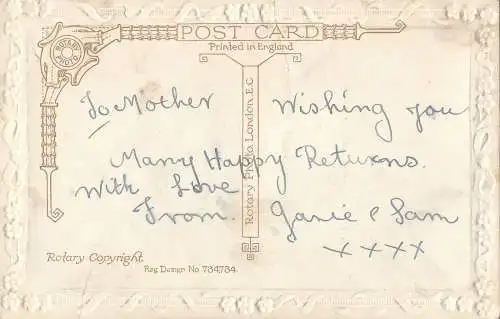 POST CARD
Printed in England
ROTARY PHOTO
To Mother Wishing you
Many Happy Returns.
With Love
From. Janie & Sam
xxxx
Rotary Photo London. E.C
Rotary Copyright.
Reg Design No 734734.